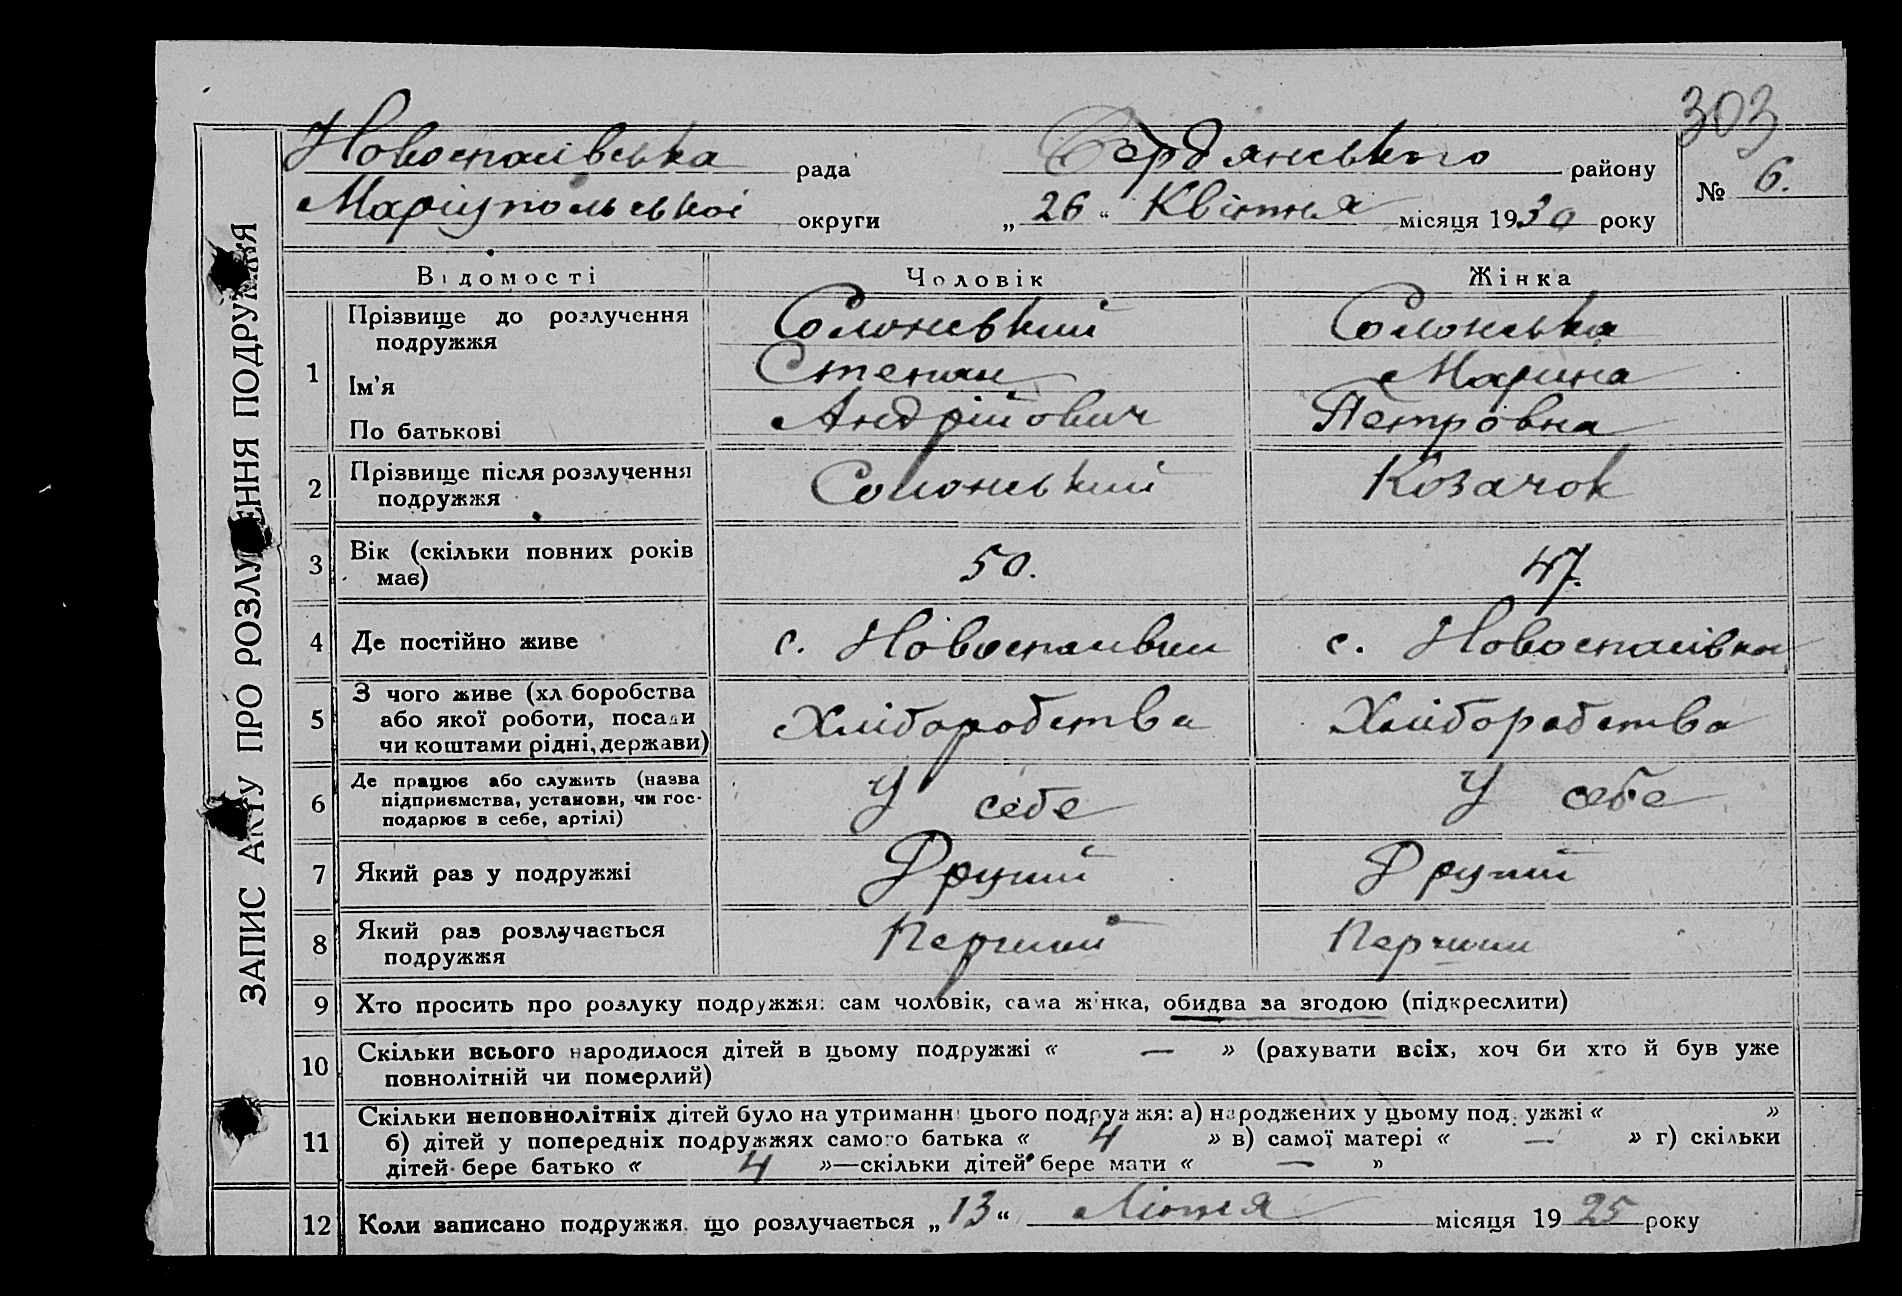 303
Новоспасівська рада Бердянського району № 6.
Маріупольської округи „ 26 “ Квітня місяця 1930 року
ЗАПИС АКТУ ПРО РОЗЛУЧЕННЯ ПОДРУЖЖЯ
Відомості Чоловік Жінка
1 Прізвище до розлучення подружжя Солонський Солонська
Ім’я Степан Марина
По батькові Андрійович Петровна
2 Прізвище після розлучення подружжя Солонський Козачок
3 Вік (скільки повних років має) 50. 47.
4 Де постійно живе с. Новоспасівка с. Новоспасівка
5 З чого живе (хліборобства або якої роботи, посади чи коштами рідні, держави) Хліборобства Хліборобства
6 Де працює або служить (назва підприємства, установи, чи господарює в себе, артілі) У себе У себе
7 Який раз у подружжі Другий Другий
8 Який раз розлучається подружжя Перший Перший
9 Хто просить про розлуку подружжя: сам чоловік, сама жінка, обидва за згодою (підкреслити)
10 Скільки всього народилося дітей в цьому подружжі « — » (рахувати всіх, хоч би хто й був уже
повнолітній чи померлий)
11 Скільки неповнолітніх дітей було на утриманні цього подружжя: а) народжених у цьому подружжі « »
б) дітей у попередніх подружжях самого батька « 4 » в) самої матері « — » г) скільки
дітей бере батько « 4 »—скільки дітей бере мати « — »
12 Коли записано подружжя, що розлучається „ 13 “ Лютня місяця 1925 року